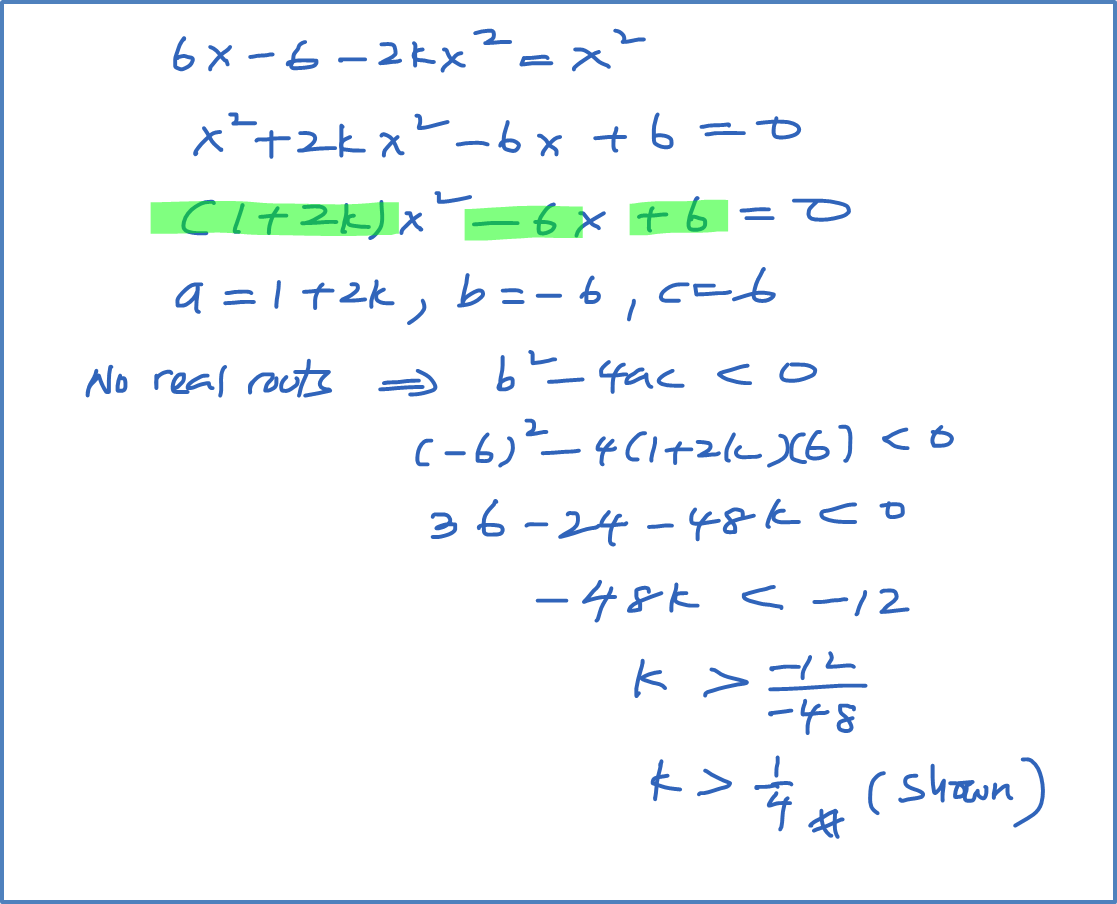 6x - 6 - 2kx² = x²
x² + 2kx² - 6x + 6 = 0
(1 + 2k)x² - 6x + 6 = 0
a = 1 + 2k, b = -6, c = 6
No real roots ⟹ b² - 4ac < 0
(-6)² - 4(1 + 2k)(6) < 0
36 - 24 - 48k < 0
-48k < -12
k > -12/-48
k > 1/4 # (shown)